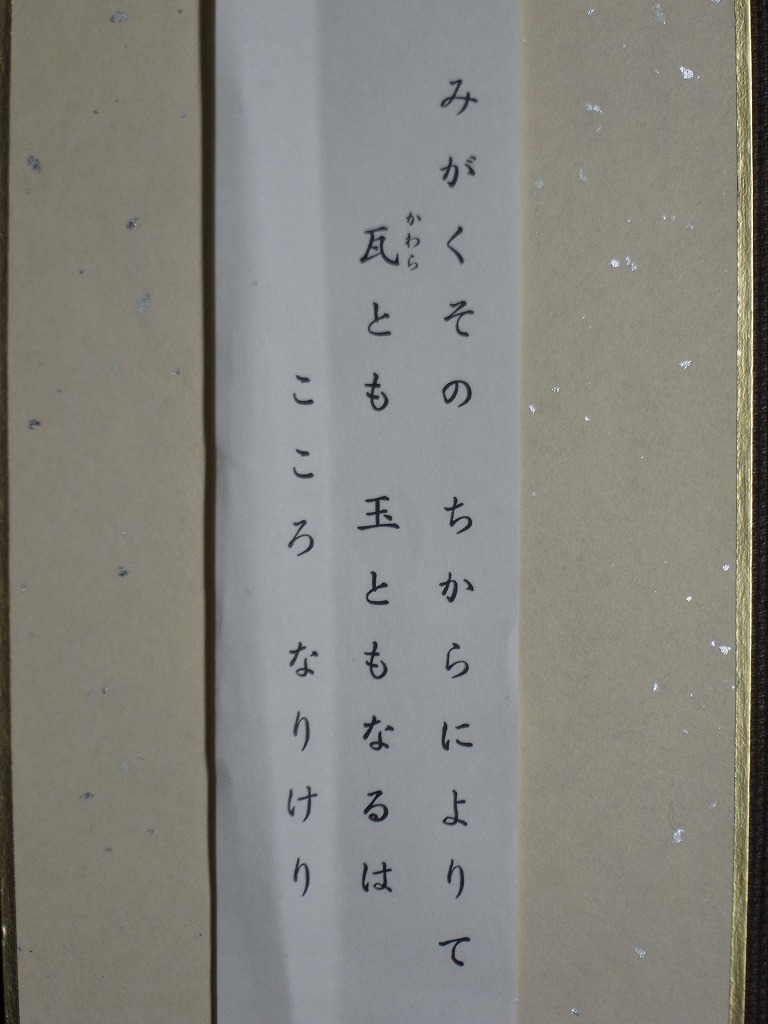 みがくその ちからによりて
瓦とも 玉ともなるは
かわら
こころ なりけり